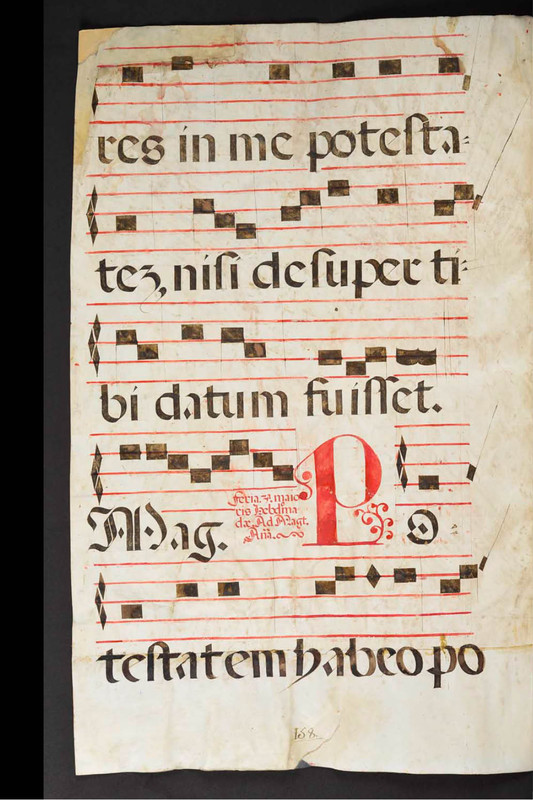 res in me potesta-
tez, nisi desuper ti-
bi datum fuisset.
Mag.
feria. 3. maio
ris Hebdma
dæ Ad Magt.
Aña.
PO
testatem habeo po